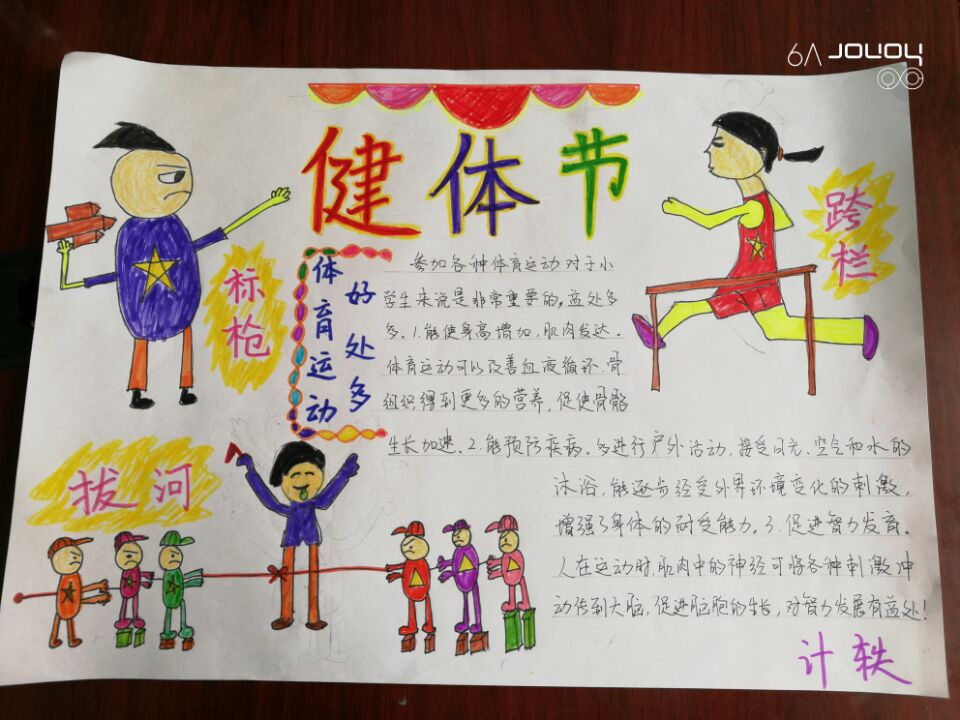 6Λ JOYOY
健体节
标枪
跨栏
体育运动
好处多
参加各种体育运动对于小
学生来说是非常重要的。益处多
多。1.能使身高增加,肌肉发达。
体育运动可以改善血液循环,骨
组织得到更多的营养,促使骨骼
生长加速。2.能预防疾病。多进行户外活动,接受日光、空气和水的
沐浴,能逐步经受外界环境变化的刺激,
增强了身体的耐受能力。3.促进智力发育。
人在运动时,肌肉中的神经可将各种刺激冲
动传到大脑,促进脑胞的生长,对智力发展有益处!
拔河
计轶